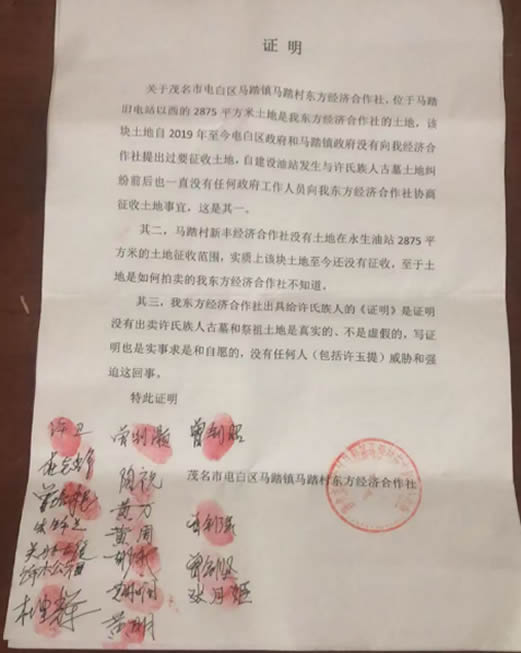 证 明
关于茂名市电白区马踏镇马踏村东方经济合作社，位于马踏
旧电站以西的 2875 平方米土地是我东方经济合作社的土地，该
块土地自 2019 年至今电白区政府和马踏镇政府没有向我经济合
作社提出过要征收土地，自建设油站发生与许氏族人古墓土地纠
纷前后也一直没有任何政府工作人员向我东方经济合作社协商
征收土地事宜，这是其一。
其二，马踏村新丰经济合作社没有土地在永生油站 2875 平
方米的土地征收范围，实质上该块土地至今还没有征收，至于土
地是如何拍卖的我东方经济合作社不知道。
其三，我东方经济合作社出具给许氏族人的《证明》是证明
没有出卖许氏族人古墓和祭祖土地是真实的、不是虚假的，写证
明也是实事求是和自愿的，没有任何人（包括许玉提）威胁和强
迫这回事。
特此证明
许卫
茂名市电白区马踏镇马踏村东方经济合作社
黄万
黄周
张月姬
黄明